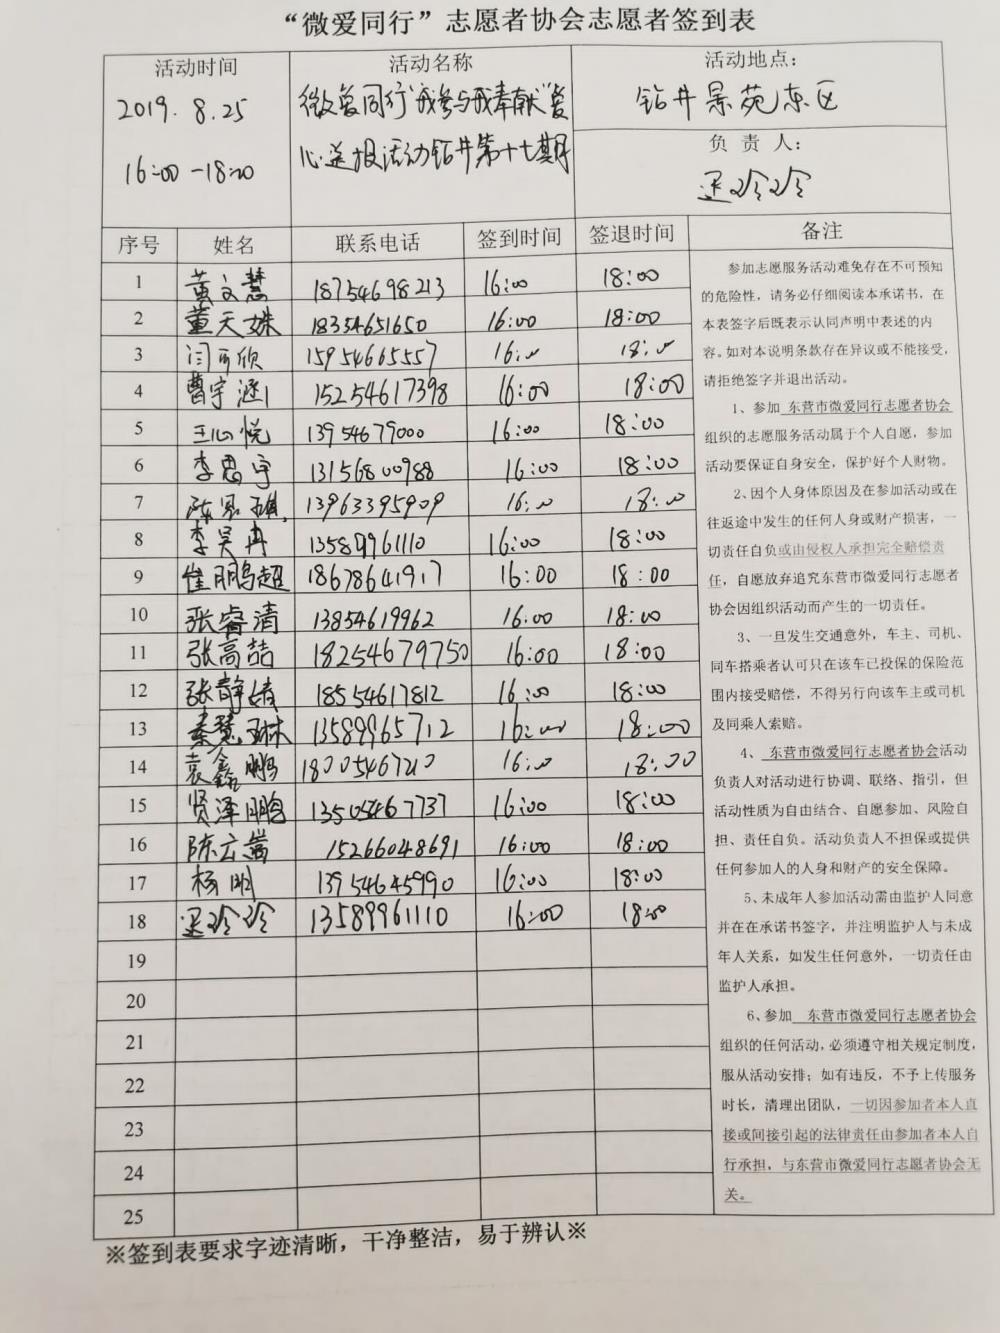 “微爱同行”志愿者协会志愿者签到表
活动时间
2019. 8.25
16:00-18:00
活动名称
微爱同行“我参与我奉献”爱
心送报活动钻井第十七期
活动地点：
钻井景苑东区
负责人：
玲玲
序号 姓名 联系电话 签到时间 签退时间 备注
1 黄文慧 18754698213 16:00 18:00
2 董天姝 18334651650 16:00 18:00
3 闫可欣 15954665557 16:00 18:00
4 曹宇涵 15254617398 16:00 18:00
5 王心悦 13954679000 16:00 18:00
6 李思宇 13156800988 16:00 18:00
7 陈 13963395909 16:00 18:00
8 李昊冉 13589961110 16:00 18:00
9 崔鹏超 18678641917 16:00 18:00
10 张睿清 13854619962 16:00 18:00
11 张高喆 18254679750 16:00 18:00
12 张静婧 18554617812 16:00 18:00
13 秦慧琳 13589965712 16:00 18:00
14 袁鑫鹏 18005467210 16:00 18:00
15 贤泽鹏 13505467737 16:00 18:00
16 陈云嵩 15266048691 16:00 18:00
17 杨明 13954645990 16:00 18:00
18 玲玲 13589961110 16:00 18:00
19
20
21
22
23
24
25
参加志愿服务活动难免存在不可预知
的危险性，请务必仔细阅读本承诺书，在
本表签字后既表示认同声明中表述的内
容。如对本说明条款存在异议或不能接受，
请拒绝签字并退出活动。
1、参加 东营市微爱同行志愿者协会
组织的志愿服务活动属于个人自愿，参加
活动要保证自身安全，保护好个人财物。
2、因个人身体原因及在参加活动或在
往返途中发生的任何人身或财产损害，一
切责任自负或由侵权人承担完全赔偿责
任，自愿放弃追究东营市微爱同行志愿者
协会因组织活动而产生的一切责任。
3、一旦发生交通意外，车主、司机、
同车搭乘者认可只在该车已投保的保险范
围内接受赔偿，不得另行向该车主或司机
及同乘人索赔。
4、 东营市微爱同行志愿者协会活动
负责人对活动进行协调、联络、指引，但
活动性质为自由结合、自愿参加、风险自
担、责任自负。活动负责人不担保或提供
任何参加人的人身和财产的安全保障。
5、未成年人参加活动需由监护人同意
并在在承诺书签字，并注明监护人与未成
年人关系，如发生任何意外，一切责任由
监护人承担。
6、参加 东营市微爱同行志愿者协会
组织的任何活动，必须遵守相关规定制度，
服从活动安排；如有违反，不予上传服务
时长，清理出团队，一切因参加者本人直
接或间接引起的法律责任由参加者本人自
行承担，与东营市微爱同行志愿者协会无
关。
※签到表要求字迹清晰，干净整洁，易于辨认※